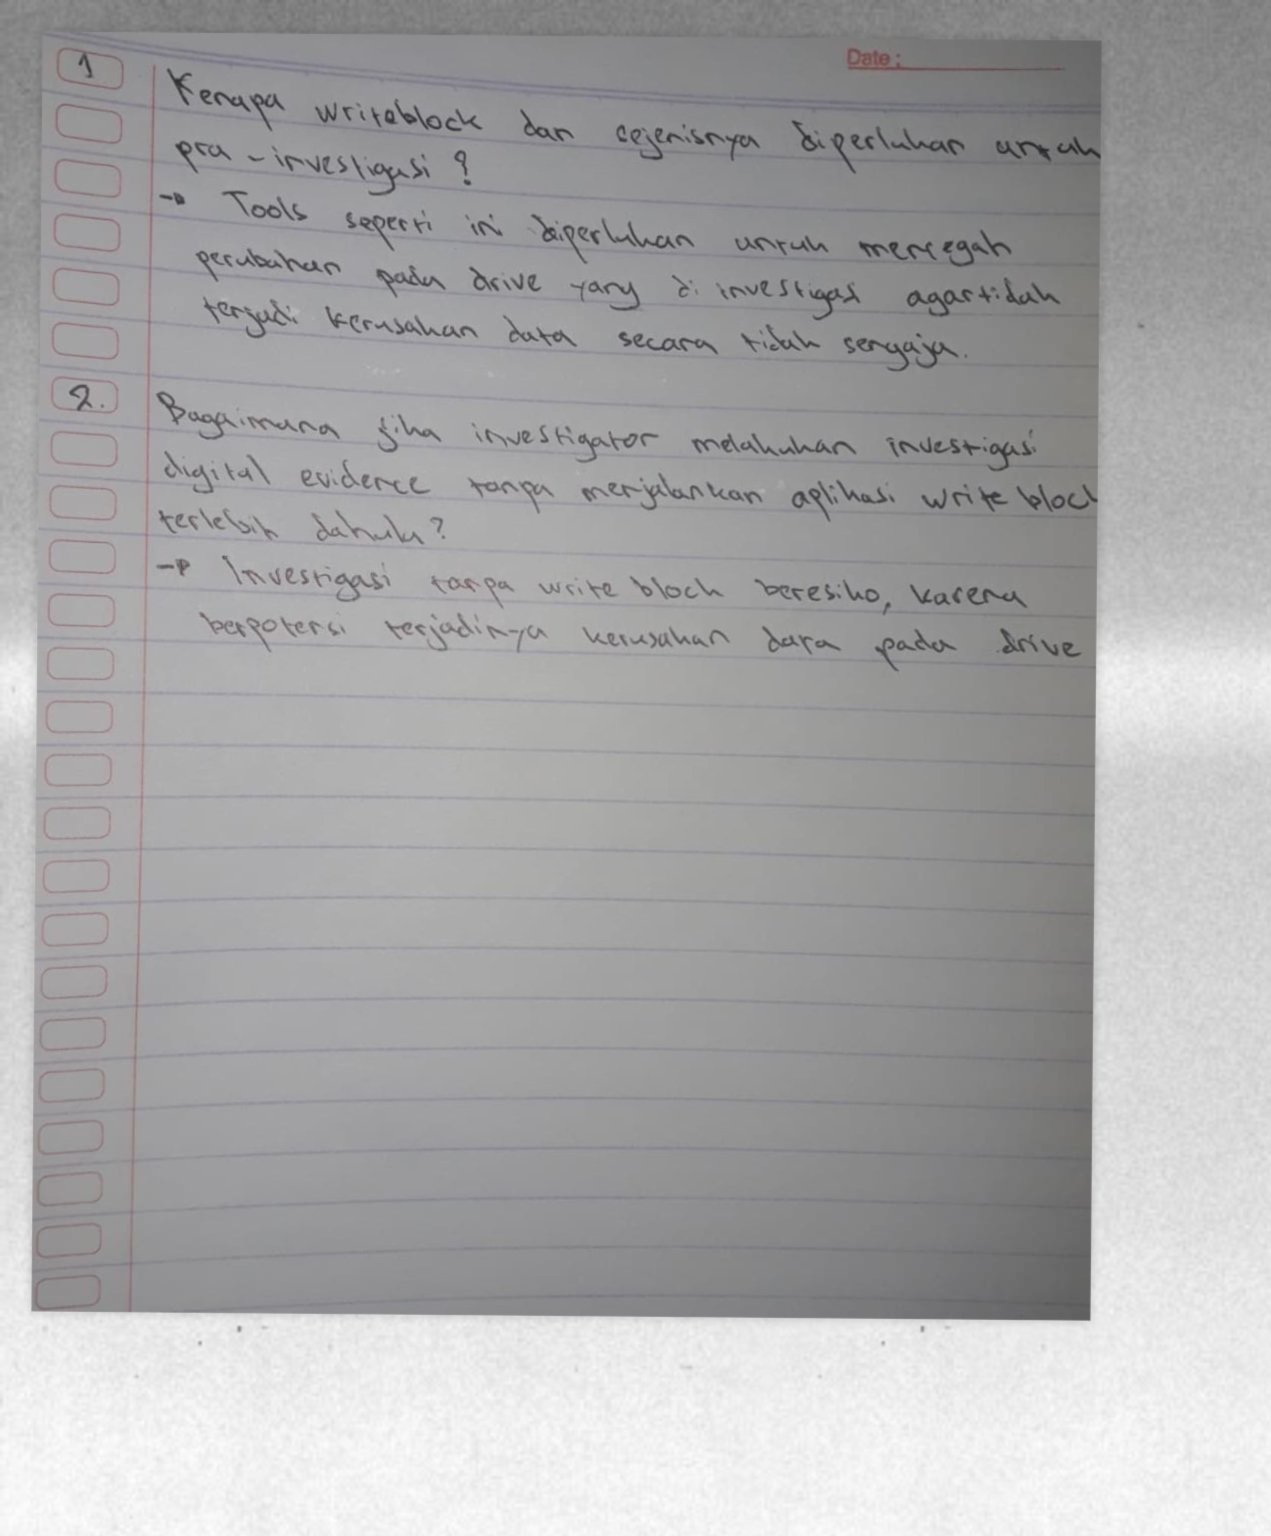 Date :
1 Kenapa writeblock dan sejenisnya diperlukan untuk
pra - investigasi ?
→ Tools seperti ini diperlukan untuk mencegah
perubahan pada drive yang di investigasi agar tidak
terjadi kerusakan data secara tidak sengaja.
2. Bagaimana jika investigator melakukan investigasi
digital evidence tanpa menjalankan aplikasi write block
terlebih dahulu?
→ Investigasi tanpa write block beresiko, karena
berpotensi terjadinya kerusakan data pada drive